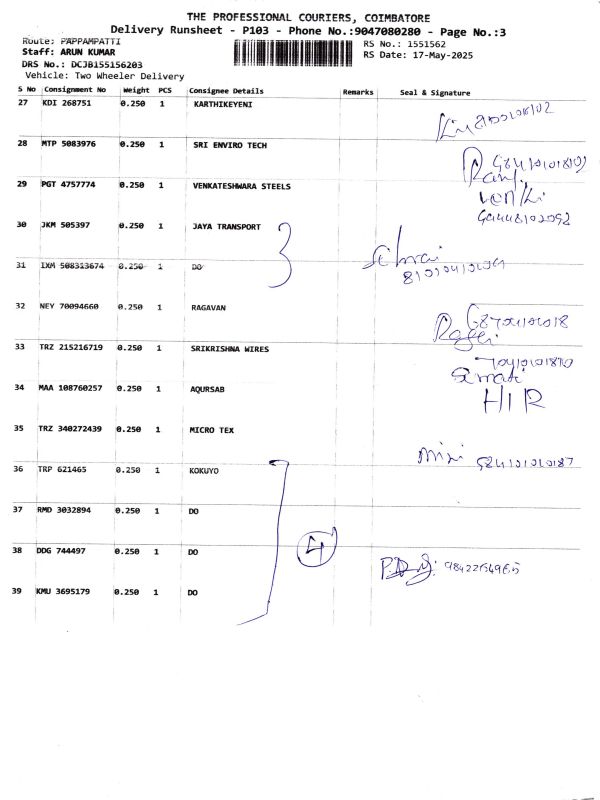 THE PROFESSIONAL COURIERS, COIMBATORE
Delivery Runsheet - P103 - Phone No.:9047080280 - Page No.:3
Route: PAPPAMPATTI
RS No.: 1551562
Staff: ARUN KUMAR
RS Date: 17-May-2025
DRS No.: DCJB155156203
Vehicle: Two Wheeler Delivery
S No Consignment No Weight PCS Consignee Details Remarks Seal & Signature
27 KDI 268751 0.250 1 KARTHIKEYENI
28 MTP 5083976 0.250 1 SRI ENVIRO TECH
29 PGT 4757774 0.250 1 VENKATESHWARA STEELS
30 JKM 505397 0.250 1 JAYA TRANSPORT
3
31 IXM 508313674 0.250 1 DO
32 NEY 70094660 0.250 1 RAGAVAN
33 TRZ 215216719 0.250 1 SRIKRISHNA WIRES
34 MAA 108760257 0.250 1 AQURSAB
HIR
35 TRZ 340272439 0.250 1 MICRO TEX
36 TRP 621465 0.250 1 KOKUYO
37 RMD 3032894 0.250 1 DO
38 DDG 744497 0.250 1 DO
4
39 KMU 3695179 0.250 1 DO